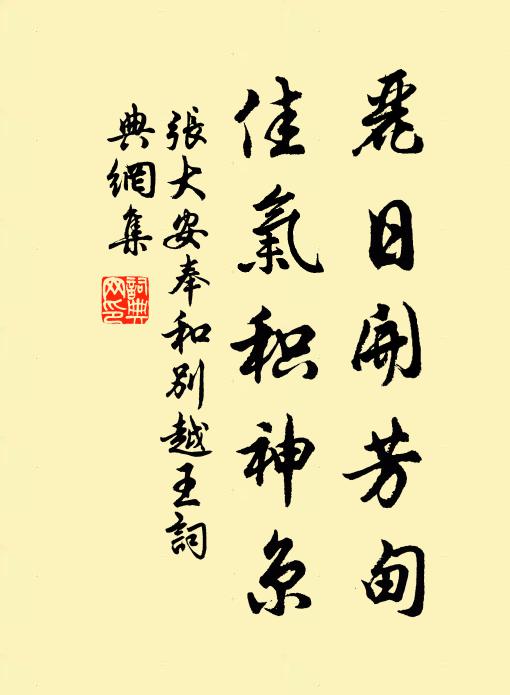 麗日開芳甸
佳氣积神京
張大安奉和別越王詞
典網集
詞典
网印